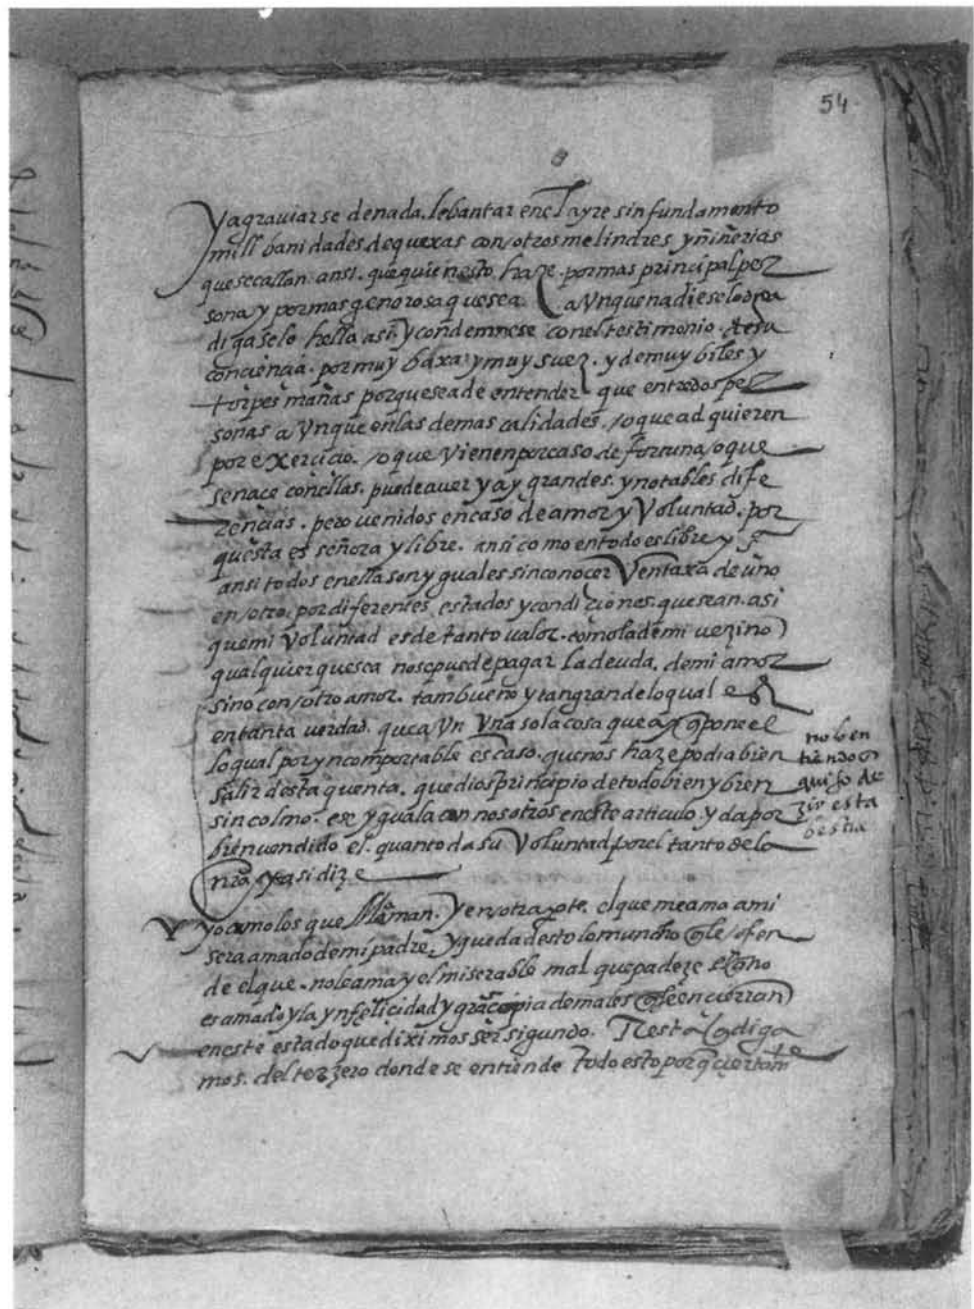 54
y agraviarse de nada. lebantar en el ayre sin fundamento
mill banidades de quexas con otros melindres y niñerias
que se callan. ansi. que quien esto. haze. por mas principal per
sona y por mas generosa que sea. aunque nadie se lo diga
digaselo hella asi. y condemnese con el testimonio. de su
conciencia. por muy baxa. y muy suez. y de muy biles y
torpes mañas porque se a de entender que entre dos per
sonas aunque en las demas calidades. o que adquieren
por exercicio. o que vienen por caso de fortuna o que
se nace con ellas. puede aver y ay grandes. y notables dife
rencias. pero venidos en caso de amor y voluntad. por
questa es señora y libre. ansi como en todo es libre y
ansi todos en ella son yguales sin conocer ventaxa de uno
en otro. por diferentes estados y condiziones. que sean. asi
que mi voluntad es de tanto valor. como la de mi vezino
qualquier que sea no se puede pagar la deuda. de mi amor
sino con otro amor. tam bueno y tan grande lo qual es
en tanta verdad. que aun una sola cosa que pone el
lo qual por yncomportable escaso. que nos haze podia bien
salir desta quenta. que dios principio de todo bien y bien
sin colmo. se yguala con nosotros en este articulo y da por
bien vendido el. quanto da su voluntad por el tanto de la
nra. y asi dize
no lo en
tiendo
quiso de
zir esta
bestia
yo amo los que me aman. y en otra pte. el que me amo a mi
sera amado de mi padre. y queda desto lo muncho q le ofen
de el que. no le ama y el miserable mal que padeze el q no
es amado y la ynfelicidad y gran copia de males q se encierran
en este estado que diximos ser sigundo. Resta q diga
mos. del terzero donde se entiende todo esto porq ciertamte